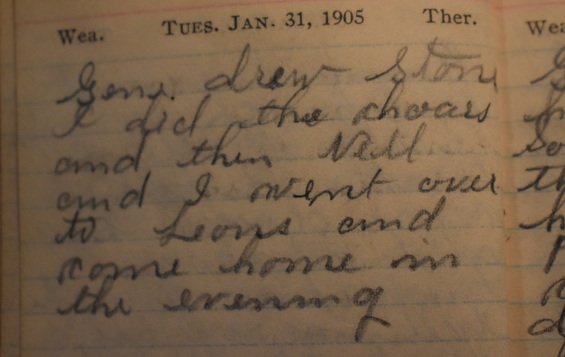 Wea. TUES. JAN. 31, 1905 Ther.
Gene. drew Stone
I did the choars
and then Nell
and I went over
to Leons and
come home in
the evening